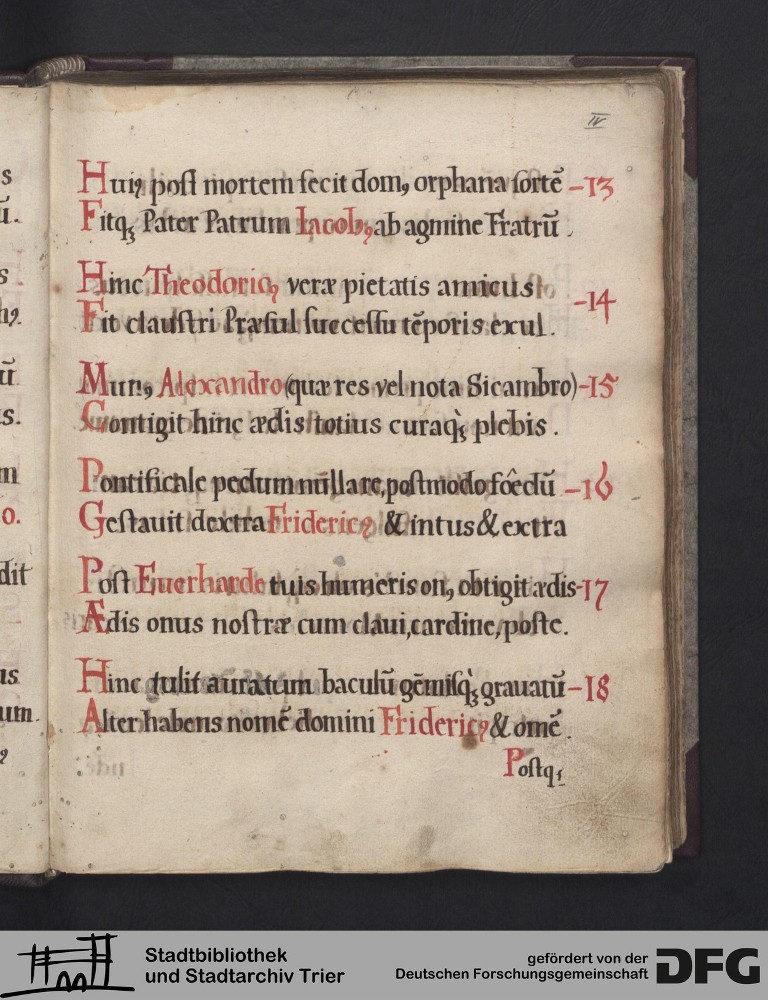 IV
s
ū.
s
hꝰ.
ū
s.
m
o.
dit
us
um.
ꝰ
Huiꝰ post mortem fecit domꝰ orphana sortē –13
Fitqꝫ Pater Patrum Iacobꝰ ab agmine Fratrū.
Hinc Theodoricꝰ veræ pietatis amicus –14
Fit claustri Præsul successu tēporis exul.
Munꝰ Alexandro (quæ res vel nota Sicambro) –15
Contigit hinc ædis totius curaqꝫ̀ plebis.
Pontificale pedum nūllare, postmodo foêdū –16
Gestauit dextra Fridericꝰ & intus & extra
Post Euerharde tuis humeris onꝰ obtigit ædis –17
Ædis onus nostræ cum claui, cardine, poste.
Hinc tulit auratum baculū gēmisqꝫ̀ grauatū –18
Alter habens nomē domini Fridericꝰ & omē.
Postqꝫ
Stadtbibliothek
und Stadtarchiv Trier
gefördert von der
Deutschen Forschungsgemeinschaft
DFG